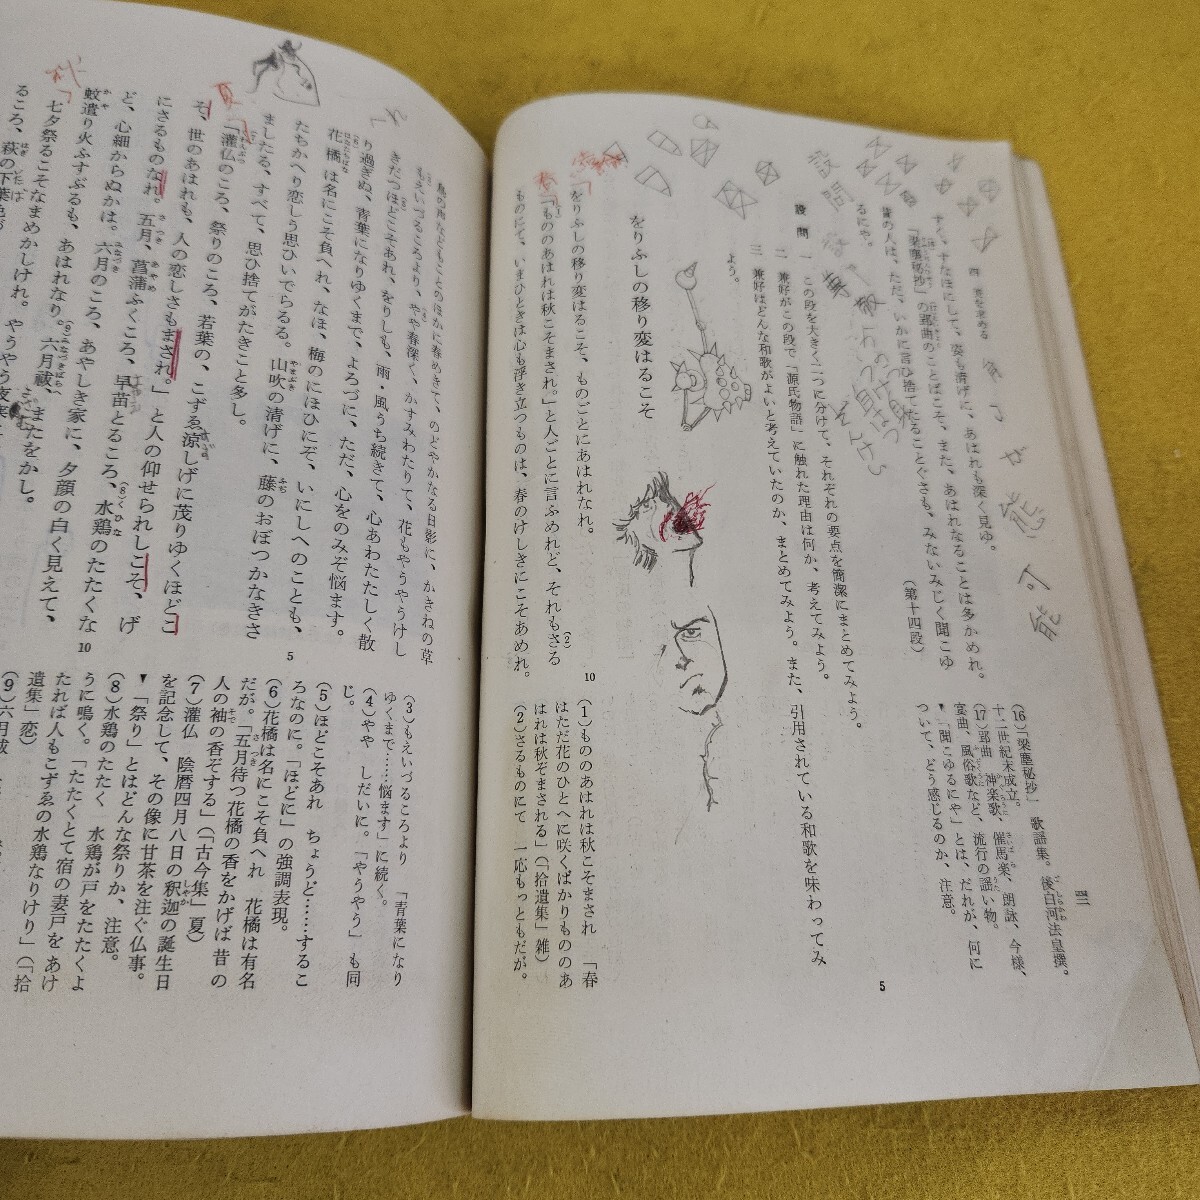 四 道を求める
すく、すなほにして、姿も清げに、あはれも深く見ゆ。
「梁塵秘抄」の郢曲のことばこそ、また、あはれなることは多かめれ。
昔の人は、ただ、いかに言ひ捨てたることぐさも、みないみじく聞こゆ
るにや。
(第十四段)
設問
一 この段を大きく二つに分けて、それぞれの要点を簡潔にまとめてみよう。
二 兼好がこの段で「源氏物語」に触れた理由は何か、考えてみよう。
三 兼好はどんな和歌がよいと考えていたのか、まとめてみよう。また、引用されている和歌を味わってみ
よう。
をりふしの移り変はるこそ
「をりふしの移り変はるこそ、ものごとにあはれなれ。
「もののあはれは秋こそまされ。」と人ごとに言ふめれど、それもさる
ものにて、いまひときは心も浮き立つものは、春のけしきにこそあめれ。
5
10
(16)「梁塵秘抄」 歌謡集。後白河法皇撰。
十二世紀末成立。
(17)郢曲 神楽歌、催馬楽、朗詠、今様、
宴曲、風俗歌など、流行の謡い物。
▼「聞こゆるにや」とは、だれが、何に
ついて、どう感じるのか、注意。
(1)もののあはれは秋こそまされ 「春
はただ花のひとへに咲くばかりもののあ
はれは秋ぞまされる」(「拾遺集」雑)
(2)さるものにて 一応もっともだが。
設問
可能
不可能
春
夏
秋
鳥の声などもことのほかに春めきて、のどやかなる日影に、かきねの草
もえいづるころより、やや春深く、かすみわたりて、花もやうやうけし
きだつほどこそあれ、をりしも、雨・風うち続きて、心あわたたしく散
り過ぎぬ、青葉になりゆくまで、よろづに、ただ、心をのみぞ悩ます。
花橘は名にこそ負へれ、なほ、梅のにほひにぞ、いにしへのことも、
たちかへり恋しう思ひいでらるる。山吹の清げに、藤のおぼつかなきさ
ましたる、すべて、思ひ捨てがたきこと多し。
「灌仏のころ、祭りのころ、若葉の、こずゑ涼しげに茂りゆくほどこ
そ、世のあはれも、人の恋しさもまされ。」と人の仰せられしこそ、げ
にさるものなれ。五月、菖蒲ふくころ、早苗とるころ、水鶏のたたくな
ど、心細からぬかは。六月のころ、あやしき家に、夕顔の白く見えて、
蚊遣り火ふすぶるも、あはれなり。六月祓、またをかし。
七夕祭るこそなまめかしけれ。やうやう夜寒
るころ、萩の下葉色づ
5
10
(3)もえいづるころより 「青葉になり
ゆくまで……悩ます」に続く。
(4)やや しだいに。「やうやう」も同
じ。
(5)ほどこそあれ ちょうど……するこ
ろなのに。「ほどに」の強調表現。
(6)花橘は名にこそ負へれ 花橘は有名
だが。「五月待つ花橘の香をかげば昔の
人の袖の香ぞする」(「古今集」夏)
(7)灌仏 陰暦四月八日の釈迦の誕生日
を記念して、その像に甘茶を注ぐ仏事。
▼「祭り」とはどんな祭りか、注意。
(8)水鶏のたたく 水鶏が戸をたたくよ
うに鳴く。「たたくとて宿の妻戸をあけ
たれば人もこずゑの水鶏なりけり」(「拾
遺集」恋)
(9)六月祓